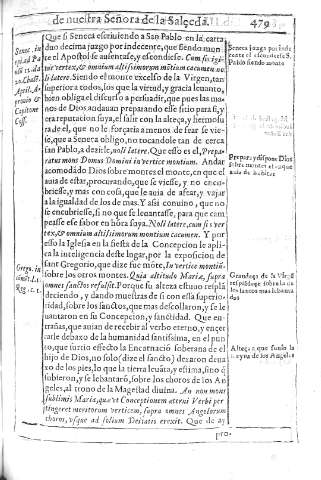 de nuestra Señora de la Salceda. 479
Que si Seneca escriuiendo a San Pablo en la carta
duo decima juzgo por indecente, que siendo monte
el Apostol se ausentasse, y escondiesse. Cum sis igi-
tur vertex, & omnium altissimorum montium cacumen no-
li latere. Siendo el monte excelso de la Virgen, tan
superior a todos, los que la virtud, y gracia leuanto,
bien obliga el discurso a persuadir, que pues las ma-
nos de Dios andauan preparando esse sitio para si, y
era reputacion suya, el salir con la alteza, y hermosu-
ra de el, que no le forçaria a menos de ser se vies-
se, que a Seneca obligo, no tocandole tan de cerca
san Pablo, a dezirle, noli latere. Que esso es el, Prepa-
ratus mons Domus Domini in vertice montium. Andar
acomodãdo Dios sobre montes el monte, en que el
auia de estar, procurando, que se viesse, y no encu-
briesse, y mas con cosa, que le auia de afear, y vajar
a la igualdad de los de mas. Y assi conuino, que no
se encubriesse, si no que se leuantasse, para que cam-
peasse esse fabor en hõra suya. Noli latere, cum sis ver-
tex, & omnium altissimorum montium cacumen. Y por
esso la Iglesia en la fiesta de la Concepcion le apli-
ca la inteligencia deste lugar, por la exposicion de
sant Gregorio, que dize fue môte, In vertice montiũ,
sobre los otros montes. Quia altitudo Mariæ, supra
omnes sanctos refulsit. Porque su alteza estuuo resplã
deciendo, y dando muestras de si con essa superio-
ridad, sobre los sanctos, que mas descollaron, y se le
uantaron en su Concepcion, y sanctidad. Que en-
trañas, que auian de recebir al verbo eterno, y encer-
carle debaxo de la humanidad santissima, en el pun-
to, que surtio effecto la Encarnació soberana de el
hijo de Dios, no solo (dize el sancto) dexaron deua
xo de los pies, lo que la tierra leuãta, y estima, sino q̃
subieron, y se lebantarõ, sobre los choros de los An
geles, al trono de la Magestad diuina. An non mons
sublimis Maria, quæ vt Conceptionem æterni Verbi per
tingeret meritorum verticem, supra omnes Angelorum
choros, vsque ad solium Deitatis erexit. Que de ay
pro-
Senec. in
Gregor. in
Seneca juzga por inde
cente el esconderse S.
Pablo siendo monte
Prepara y dispone Dios
sobre montes el en que
auia de habitar
Grandeza de la Virgẽ